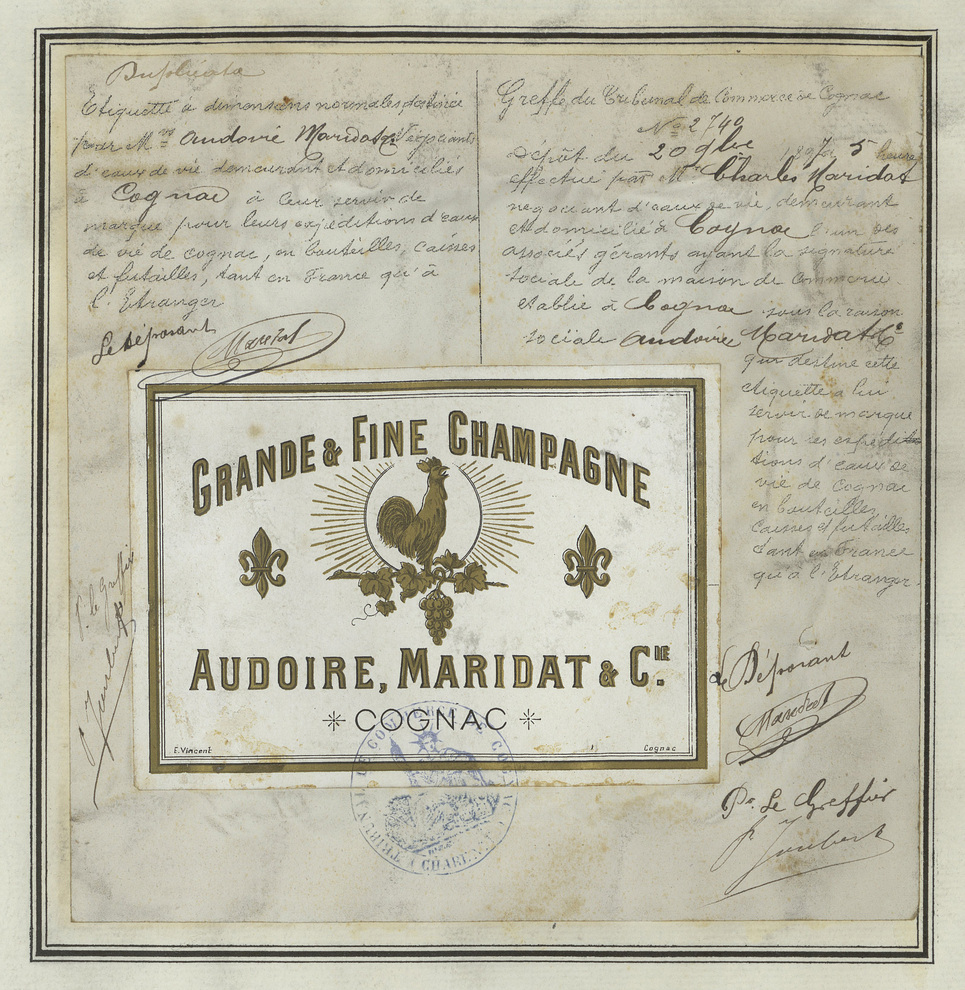 Duplicata
Etiquette à dimensions normales destinée
pour Mrs Audoire Maridat & Cie négociants
d'eaux de vie demeurant et domiciliés
à Cognac à leur servir de
marque pour leurs expéditions d'eaux
de vie de cognac, en bouteilles, caisses
et futailles, tant en France qu'à
l'Etranger
Le déposant
Maridat
Greffe du Tribunal de Commerce de Cognac
No 2740
Dépôt du 20 9bre 1897 à 5 heures
effectué par Mr Charles Maridat
négociant d'eaux de vie, demeurant
et domicilié à Cognac l'un des
associés gérants ayant la signature
sociale de la maison de commerce
établie à Cognac sous la raison
sociale Audoire Maridat & Cie
qui destine cette
étiquette à lui
servir de marque
pour ses expédi-
tions d'eaux de
vie de Cognac
en bouteilles,
caisses et futailles
tant en France
qu'à l'Etranger.
Le Déposant
Maridat
Pr. Le Greffier
P Joubert
P. le Greffier
P Joubert
GRANDE & FINE CHAMPAGNE
AUDOIRE, MARIDAT & CIE.
COGNAC
E. Vincent
Cognac
TRIBUNAL DE COMMERCE DE COGNAC
CHARENTE